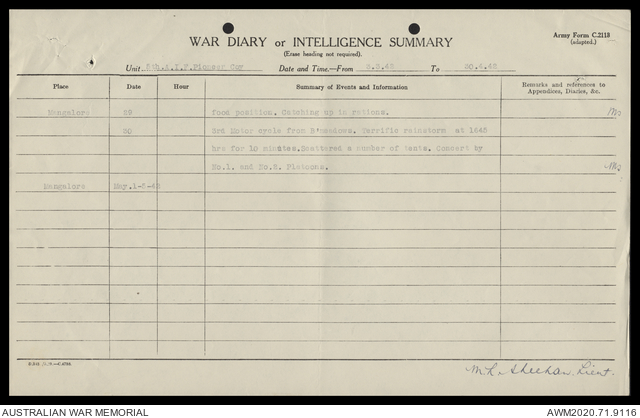 Army Form C.2118
(adapted.)
WAR DIARY or INTELLIGENCE SUMMARY
(Erase heading not required).
Unit 5th.A.I.F.Pioneer Coy Date and Time.—From 3.3.42 To 30.4.42
Place Date Hour Summary of Events and Information Remarks and references to Appendices, Diaries, &c.
Mangalore 29 food position. Catching up in rations.
30 3rd Motor cycle from B'meadows. Terrific rainstorm at 1645
hrs for 10 minutes. Shattered a number of tents. Concert by
No.1. and No.2. Platoons.
Mangalore May.1-5-42
Lieut.
AUSTRALIAN WAR MEMORIAL AWM2020.71.9116